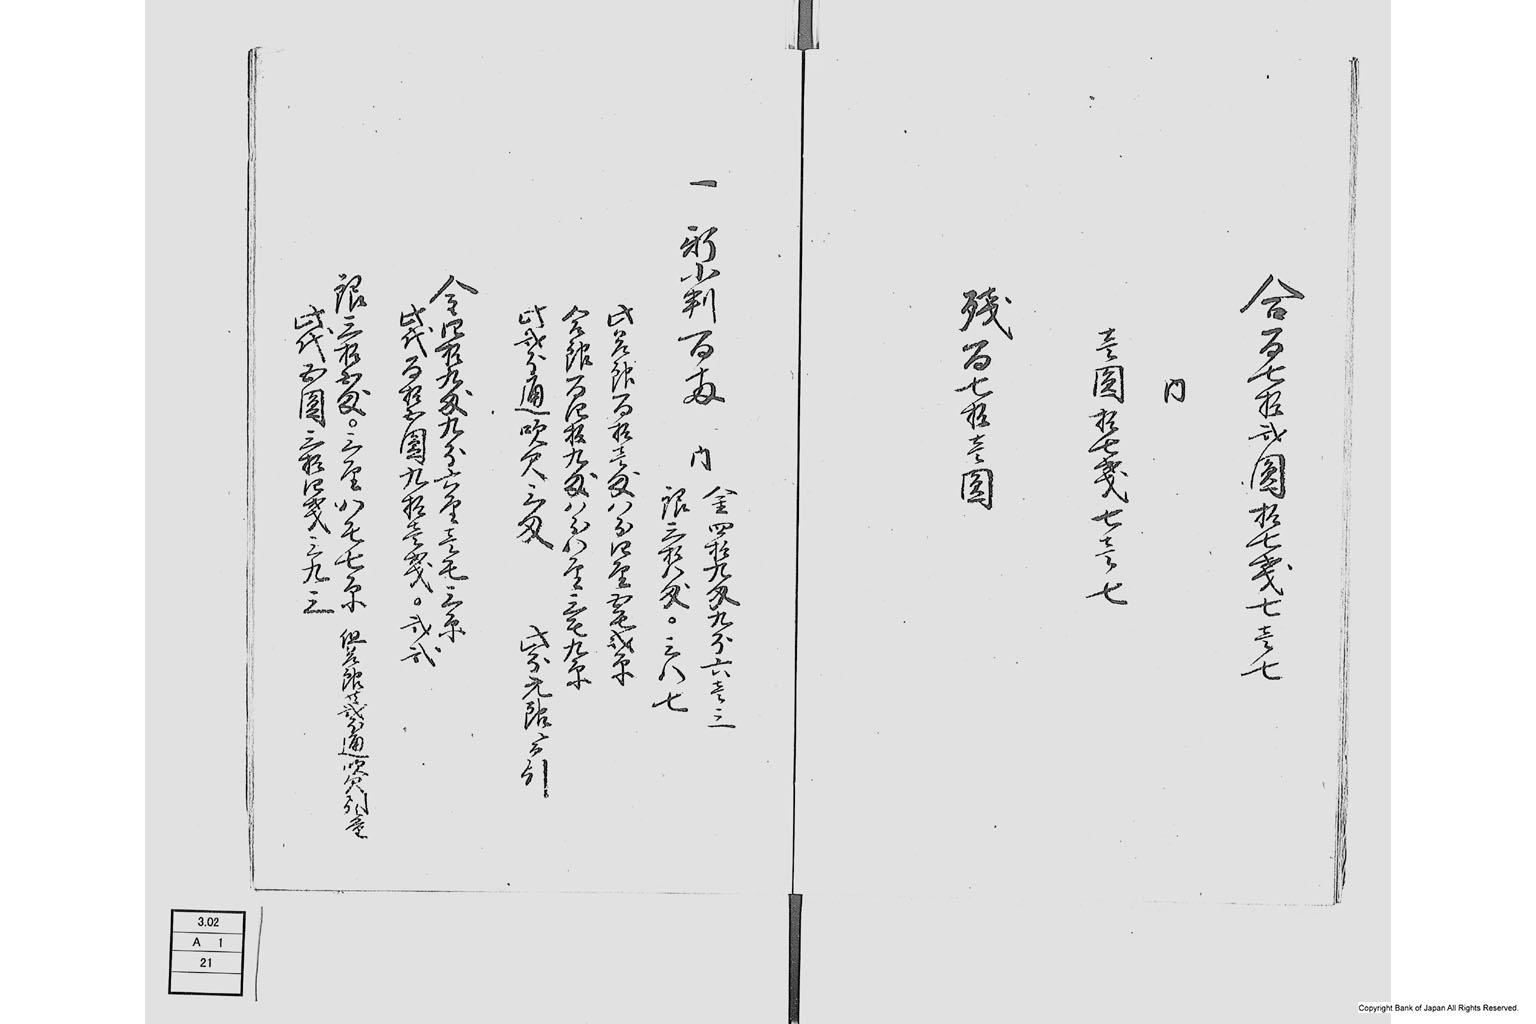 合百七拾弐圓拾七戔七壱七
内
壱圓拾七戔七壱七
残百七拾壱圓
一 新小判百両 内
金四拾九匁九分六壱三
銀三拾八匁〇三八七
此 百拾壱匁八分四厘五毛弐朱
合 百四拾九匁八分八厘三毛九朱
此弐分通吹欠三匁 此分元 引
金四拾九匁九分六厘壱毛三朱
此代百拾五圓九拾壱戔〇弐弐
銀三拾五匁〇三厘八毛七朱 但 弐分通吹欠引
此代五圓三拾四戔三九三
3.02
A 1
21
Copyright Bank of Japan All Rights Reserved.